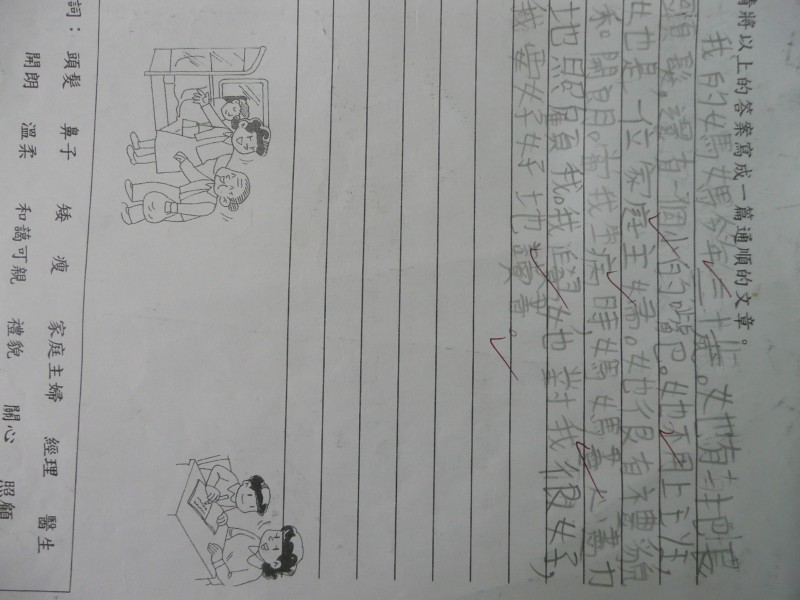 將以上的答案寫成一篇通順的文章。
我的媽媽今年三十歲。她有一把長
頭髮，還有一個小的嘴巴。她不用上班，
她是一位家庭主婦。她很有禮貌
和開朗。當我生病時媽媽會盡力
地照顧我。我覺得她對我很好，
我要好好地讀書。
詞：頭髮 鼻子 矮 瘦 家庭主婦 經理 醫生
開朗 溫柔 和藹可親 禮貌 關心 照顧